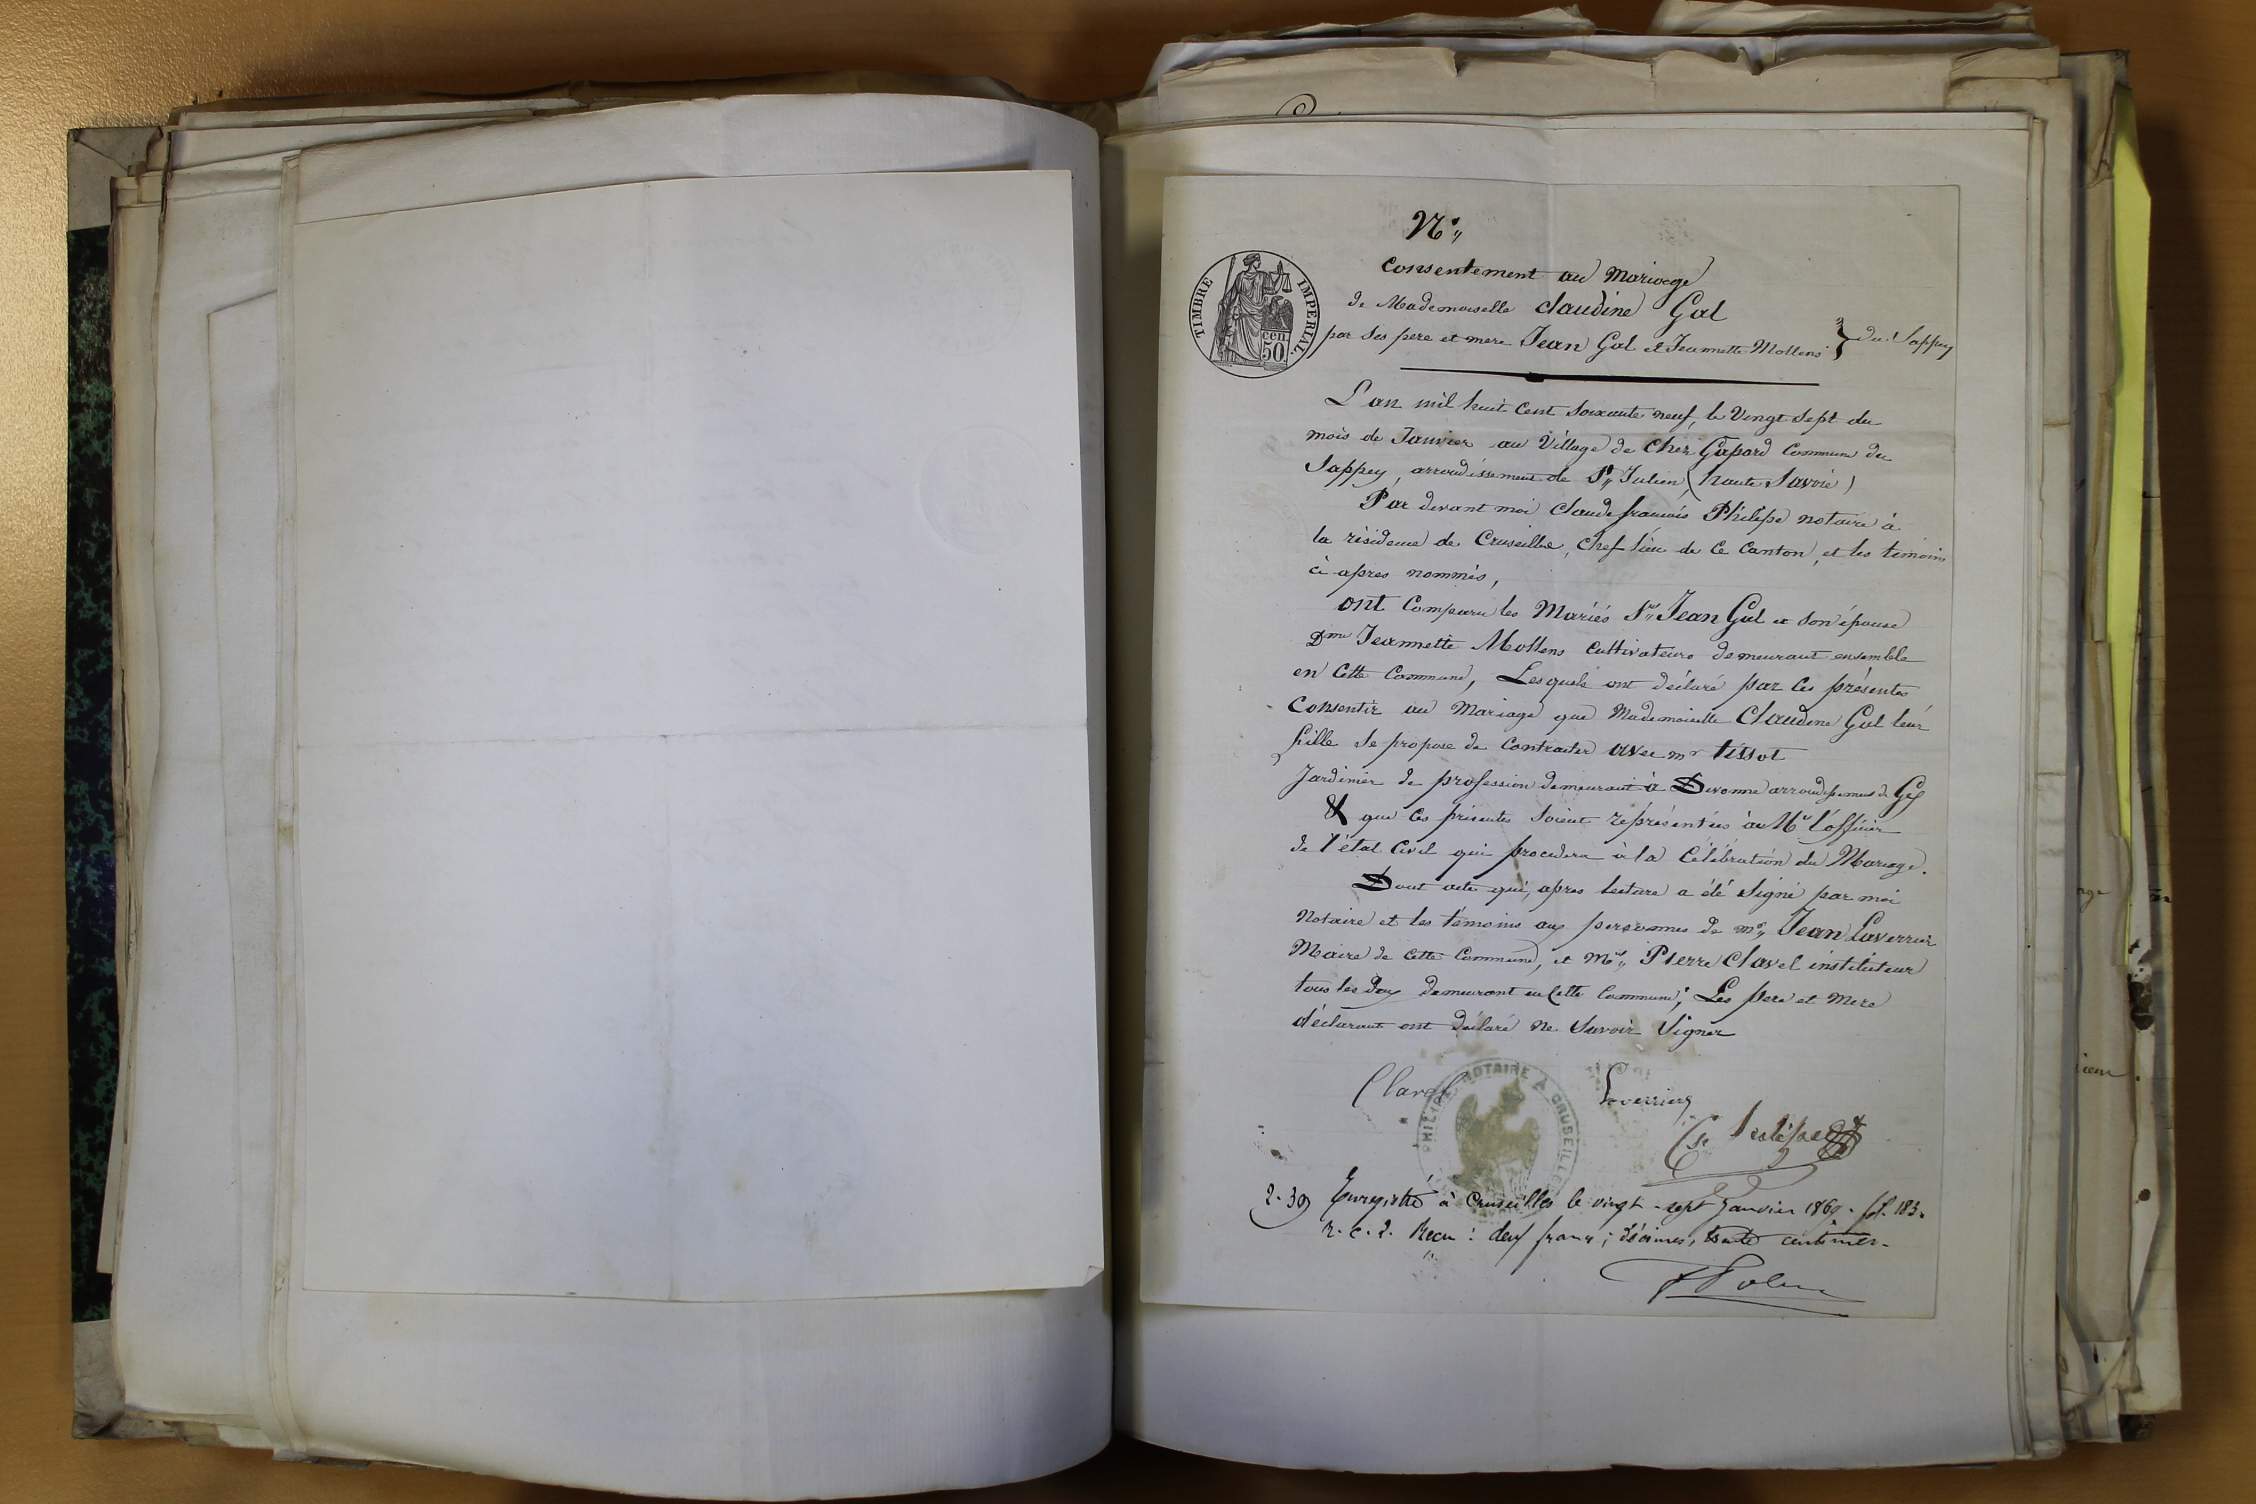 N°
Consentement au Mariage
de Mademoiselle Claudine Gal
par ses pere et mere Jean Gal et Jeannette Mollens } du Sappey
TIMBRE IMPERIAL
cen. 50.
L'an mil huit Cent Soixante neuf, le Vingt Sept du
mois de Janvier au Village de Chez Gapard Commune du
Sappey, arrondissement de St Julien, (haute Savoie)
Par devant moi Claude françois Philipe notaire à
la résidence de Cruseilles, chef lieu de Ce Canton, et les témoins
ci apres nommés,
ont Comparu les Mariés Sr Jean Gal et Son épouse
Dme Jeannette Mollens Cultivateurs demeurant ensemble
en Cette Commune, Lesquels ont déclaré par Ces présentes
Consentir au Mariage que Mademoiselle Claudine Gal leur
fille se propose de Contracter avec mr tissot
Jardinier de profession demeurant à Divonne arrondissement de Gex
& que Ces présentes Soient représentées à Mr l'officier
de l'état Civil qui procedera à la Célébration du Mariage.
Dont acte qui, apres lecture a été Signé par moi
Notaire et les témoins aux personnes de mr Jean Laverrier
Maire de Cette Commune, et Mr Pierre Clavel instituteur
tous les deux demeurant en Cette Commune; Les Pere et Mere
déclarant ont déclaré ne Savoir Signer
Clavel Laverrier
PHILIPE NOTAIRE A CRUSEILLES
2-30 Enregistré à Cruseilles le vingt-sept Janvier 1869. fol. 183.
r. c. 2. Recu: deux francs; décimes, trente centimes.